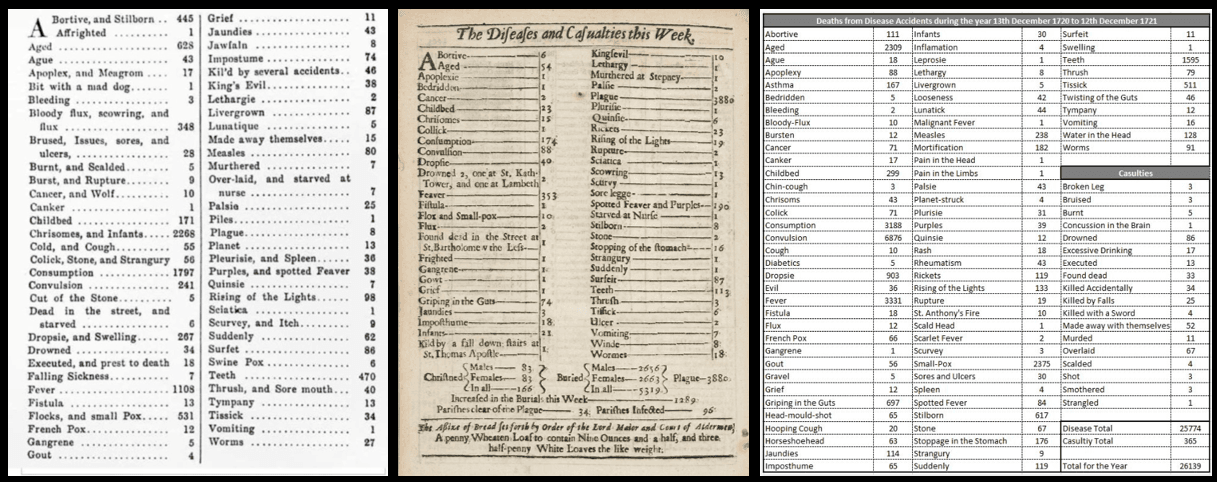 Abortive, and Stilborn .. 445
Affrighted .......... 1
Aged ................ 628
Ague ................ 43
Apoplex, and Meagrom .... 17
Bit with a mad dog........ 1
Bleeding ................ 3
Bloody flux, scowring, and
flux .................. 348
Brused, Issues, sores, and
ulcers, ................ 28
Burnt, and Scalded........ 5
Burst, and Rupture........ 9
Cancer, and Wolf.......... 10
Canker .................. 1
Childbed ................ 171
Chrisomes, and Infants.... 2268
Cold, and Cough.......... 55
Colick, Stone, and Strangury 56
Consumption ............ 1797
Convulsion .............. 241
Cut of the Stone.......... 5
Dead in the street, and
starved .............. 6
Dropsie, and Swelling...... 267
Drowned ................ 34
Executed, and prest to death 18
Falling Sickness.......... 7
Fever .................. 1108
Fistula .................. 13
Flocks, and small Pox...... 531
French Pox .............. 12
Gangrene ................ 5
Gout .................... 4
Grief .................... 11
Jaundies ................ 43
Jawfaln .................. 8
Impostume .............. 74
Kil'd by several accidents.. 46
King's Evil.............. 38
Lethargie ................ 2
Livergrown .............. 87
Lunatique ................ 5
Made away themselves.... 15
Measles .................. 80
Murthered ................ 7
Over-laid, and starved at
nurse .................. 7
Palsie .................. 25
Piles.................... 1
Plague.................... 8
Planet .................. 13
Pleurisie, and Spleen...... 36
Purples, and spotted Feaver 38
Quinsie .................. 7
Rising of the Lights...... 98
Sciatica .................. 1
Scurvey, and Itch........ 9
Suddenly ................ 62
Surfet .................. 86
Swine Pox ................ 6
Teeth .................. 470
Thrush, and Sore mouth.... 40
Tympany ................ 13
Tissick .................. 34
Vomiting ................ 1
Worms .................. 27
The Diseases and Casualties this Week.
Abortive 6
Aged 54
Apoplexie 1
Bedridden 1
Cancer 2
Childbed 23
Chrisomes 15
Collick 1
Consumption 174
Convulsion 88
Dropsie 40
Drowned 2, one at St. Kath-
Tower, and one at Lambeth 2
Feaver 353
Fistula 1
Flox and Small-pox 10
Flux 2
Found dead in the Street at
St. Bartholomew the Less 1
Frighted 1
Gangrene 1
Gowt 1
Grief 1
Griping in the Guts 74
Jaundies 3
Imposthume 18
Infants 21
Kild by a fall down stairs at
St. Thomas Apostle 1
Kingsevil 10
Lethargy 1
Murthered at Stepney 1
Palsie 2
Plague 3880
Plurisie 1
Quinsie 6
Rickets 23
Rising of the Lights 19
Rupture 2
Sciatica 1
Scowring 13
Scurvy 1
Sore legge 1
Spotted Feaver and Purples 190
Starved at Nurse 1
Stilborn 8
Stone 2
Stopping of the stomach 16
Strangury 1
Suddenly 1
Surfeit 87
Teeth 113
Thrush 3
Tissick 6
Ulcer 2
Vomiting 7
Winde 8
Wormes 18
Males 83 Males 2656
Christned Females 83 Buried Females 2663 Plague 3880
In all 166 In all 5319
Increased in the Burials this Week 1289
Parishes clear of the Plague 34 Parishes Infected 96
The Assize of Bread set forth by Order of the Lord Maior and Court of Aldermen,
A penny Wheaten Loaf to contain Nine Ounces and a half, and three
half-penny White Loaves the like weight.
Deaths from Disease Accidents during the year 13th December 1720 to 12th December 1721
Abortive 111 Infants 30 Surfeit 11
Aged 2309 Inflamation 4 Swelling 1
Ague 18 Leprosie 1 Teeth 1595
Apoplexy 88 Lethargy 8 Thrush 79
Asthma 167 Livergrown 5 Tissick 511
Bedridden 5 Looseness 42 Twisting of the Guts 46
Bleeding 2 Lunatick 44 Tympany 12
Bloody-Flux 10 Malignant Fever 1 Vomiting 16
Bursten 12 Measles 238 Water in the Head 128
Cancer 71 Mortification 182 Worms 91
Canker 17 Pain in the Head 1
Childbed 299 Pain in the Limbs 1 Casulties
Chin-cough 3 Palsie 43 Broken Leg 3
Chrisoms 43 Planet-struck 4 Bruised 3
Colick 71 Plurisie 31 Burnt 5
Consumption 3188 Purples 39 Concussion in the Brain 1
Convulsion 6876 Quinsie 12 Drowned 86
Cough 10 Rash 18 Excessive Drinking 17
Diabetics 5 Rheumatism 43 Executed 13
Dropsie 903 Rickets 119 Found dead 33
Evil 36 Rising of the Lights 133 Killed Accidentally 34
Fever 3331 Rupture 19 Killed by Falls 25
Fistula 18 St. Anthony's Fire 10 Killed with a Sword 4
Flux 12 Scald Head 1 Made away with themselves 52
French Pox 66 Scarlet Fever 2 Murded 11
Gangrene 1 Scurvey 3 Overlaid 67
Gout 56 Small-Pox 2375 Scalded 4
Gravel 5 Sores and Ulcers 30 Shot 3
Grief 12 Spleen 4 Smothered 3
Griping in the Guts 697 Spotted Fever 84 Strangled 1
Head-mould-shot 65 Stilborn 617
Hooping Cough 20 Stone 67 Disease Total 25774
Horseshoehead 63 Stoppage in the Stomach 176 Casualtiy Total 365
Jaundies 114 Strangury 9
Imposthume 65 Suddenly 119 Total for the Year 26139